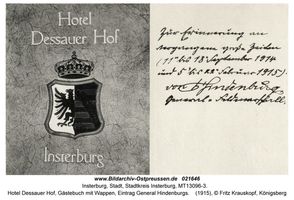 Hotel
Dessauer Hof
Insterburg
Zur Erinnerung an
vergangene große Zeiten
(11ten bis 18. September 1914
und 5ten bis Februar 1915).
von Hindenburg
General-Feldmarschall.
www.Bildarchiv-Ostpreussen.de 021646
Insterburg, Stadt, Stadtkreis Insterburg, MT13096-3.
Hotel Dessauer Hof, Gästebuch mit Wappen, Eintrag General Hindenburgs. (1915), © Fritz Krauskopf, Königsberg